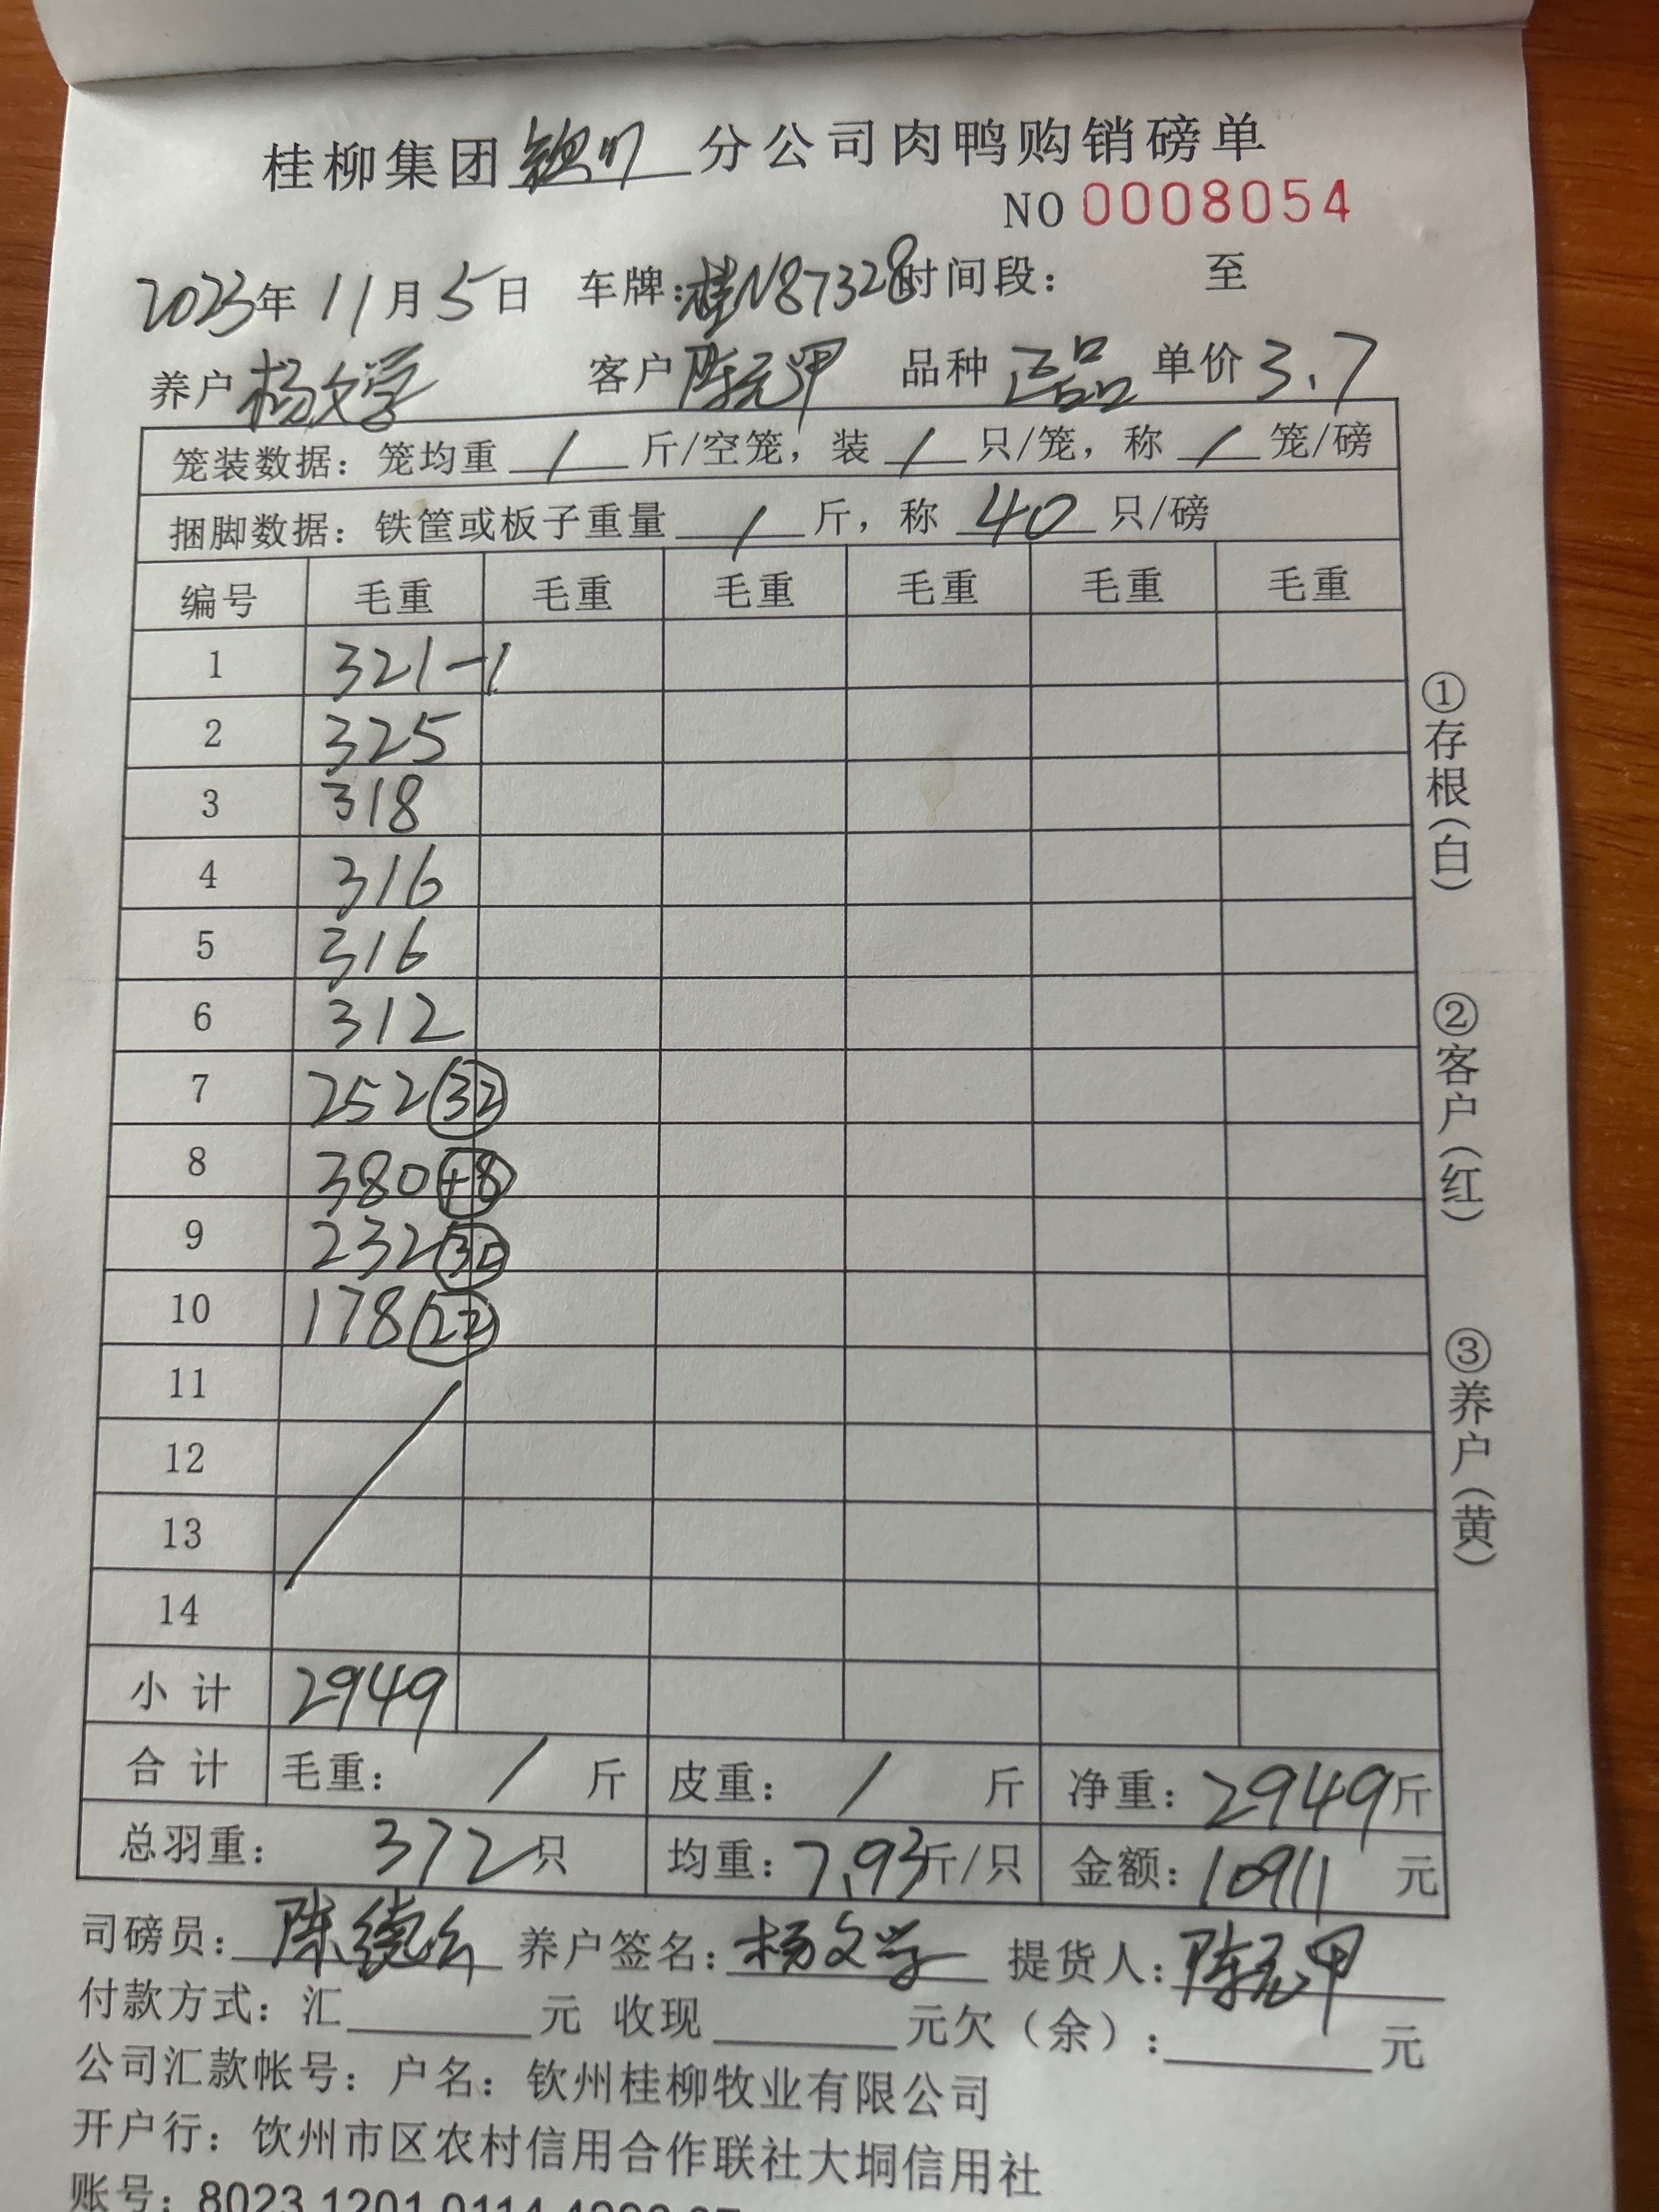 桂柳集团钦州分公司肉鸭购销磅单
NO 0008054
2023年11月5日 车牌:桂N87328时间段: 至
养户杨文学 客户陈元甲 品种正品 单价3.7
笼装数据: 笼均重 / 斤/空笼, 装 / 只/笼, 称 / 笼/磅
捆脚数据: 铁筐或板子重量 / 斤, 称 40 只/磅
编号 毛重 毛重 毛重 毛重 毛重 毛重
1 321-1
2 325
3 318
4 316
5 316
6 312
7 252 32
8 380 +8
9 232 30
10 178 22
11
12
13
14
小计 2949
合计 毛重: / 斤 皮重: / 斤 净重: 2949斤
总羽重: 372只 均重: 7.93斤/只 金额: 10911 元
①存根(白)
②客户(红)
③养户(黄)
司磅员: 陈德 养户签名: 杨文学 提货人: 陈元甲
付款方式: 汇 元 收现 元欠(余): 元
公司汇款帐号: 户名: 钦州桂柳牧业有限公司
开户行: 钦州市区农村信用合作联社大垌信用社
账号: 8023 1201 0114